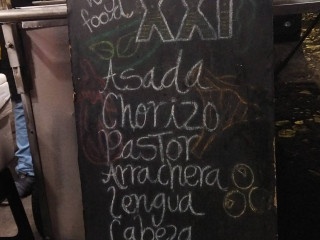 food
XXI
Asada
Chorizo
Pastor
Arrachera
Lengua
Cabeza